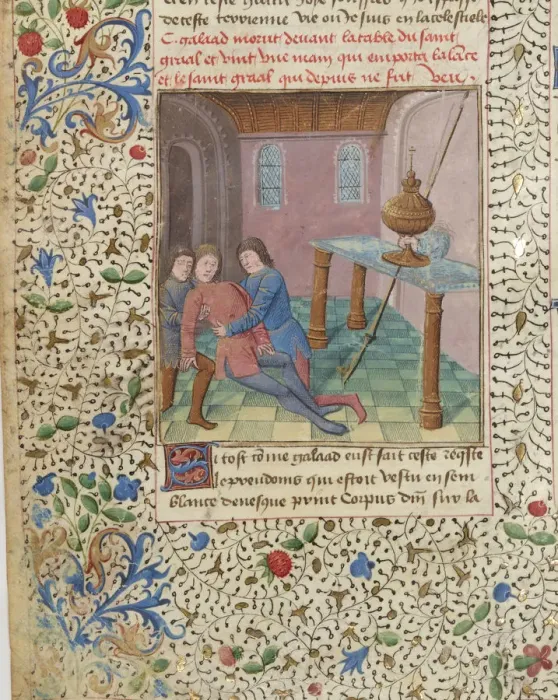 de ceste terrienne vie ou Je suis en la celestiele
C. galaad morut devant la table du saint
graal et vint vne main qui emporta la lace
et le saint graal qui depuis ne fut veu.
Si tost cõme galaad eust fait ceste reqste
le preudoms qui estoit vestu en sem
blance devesque print Corpus dm̃ sur la